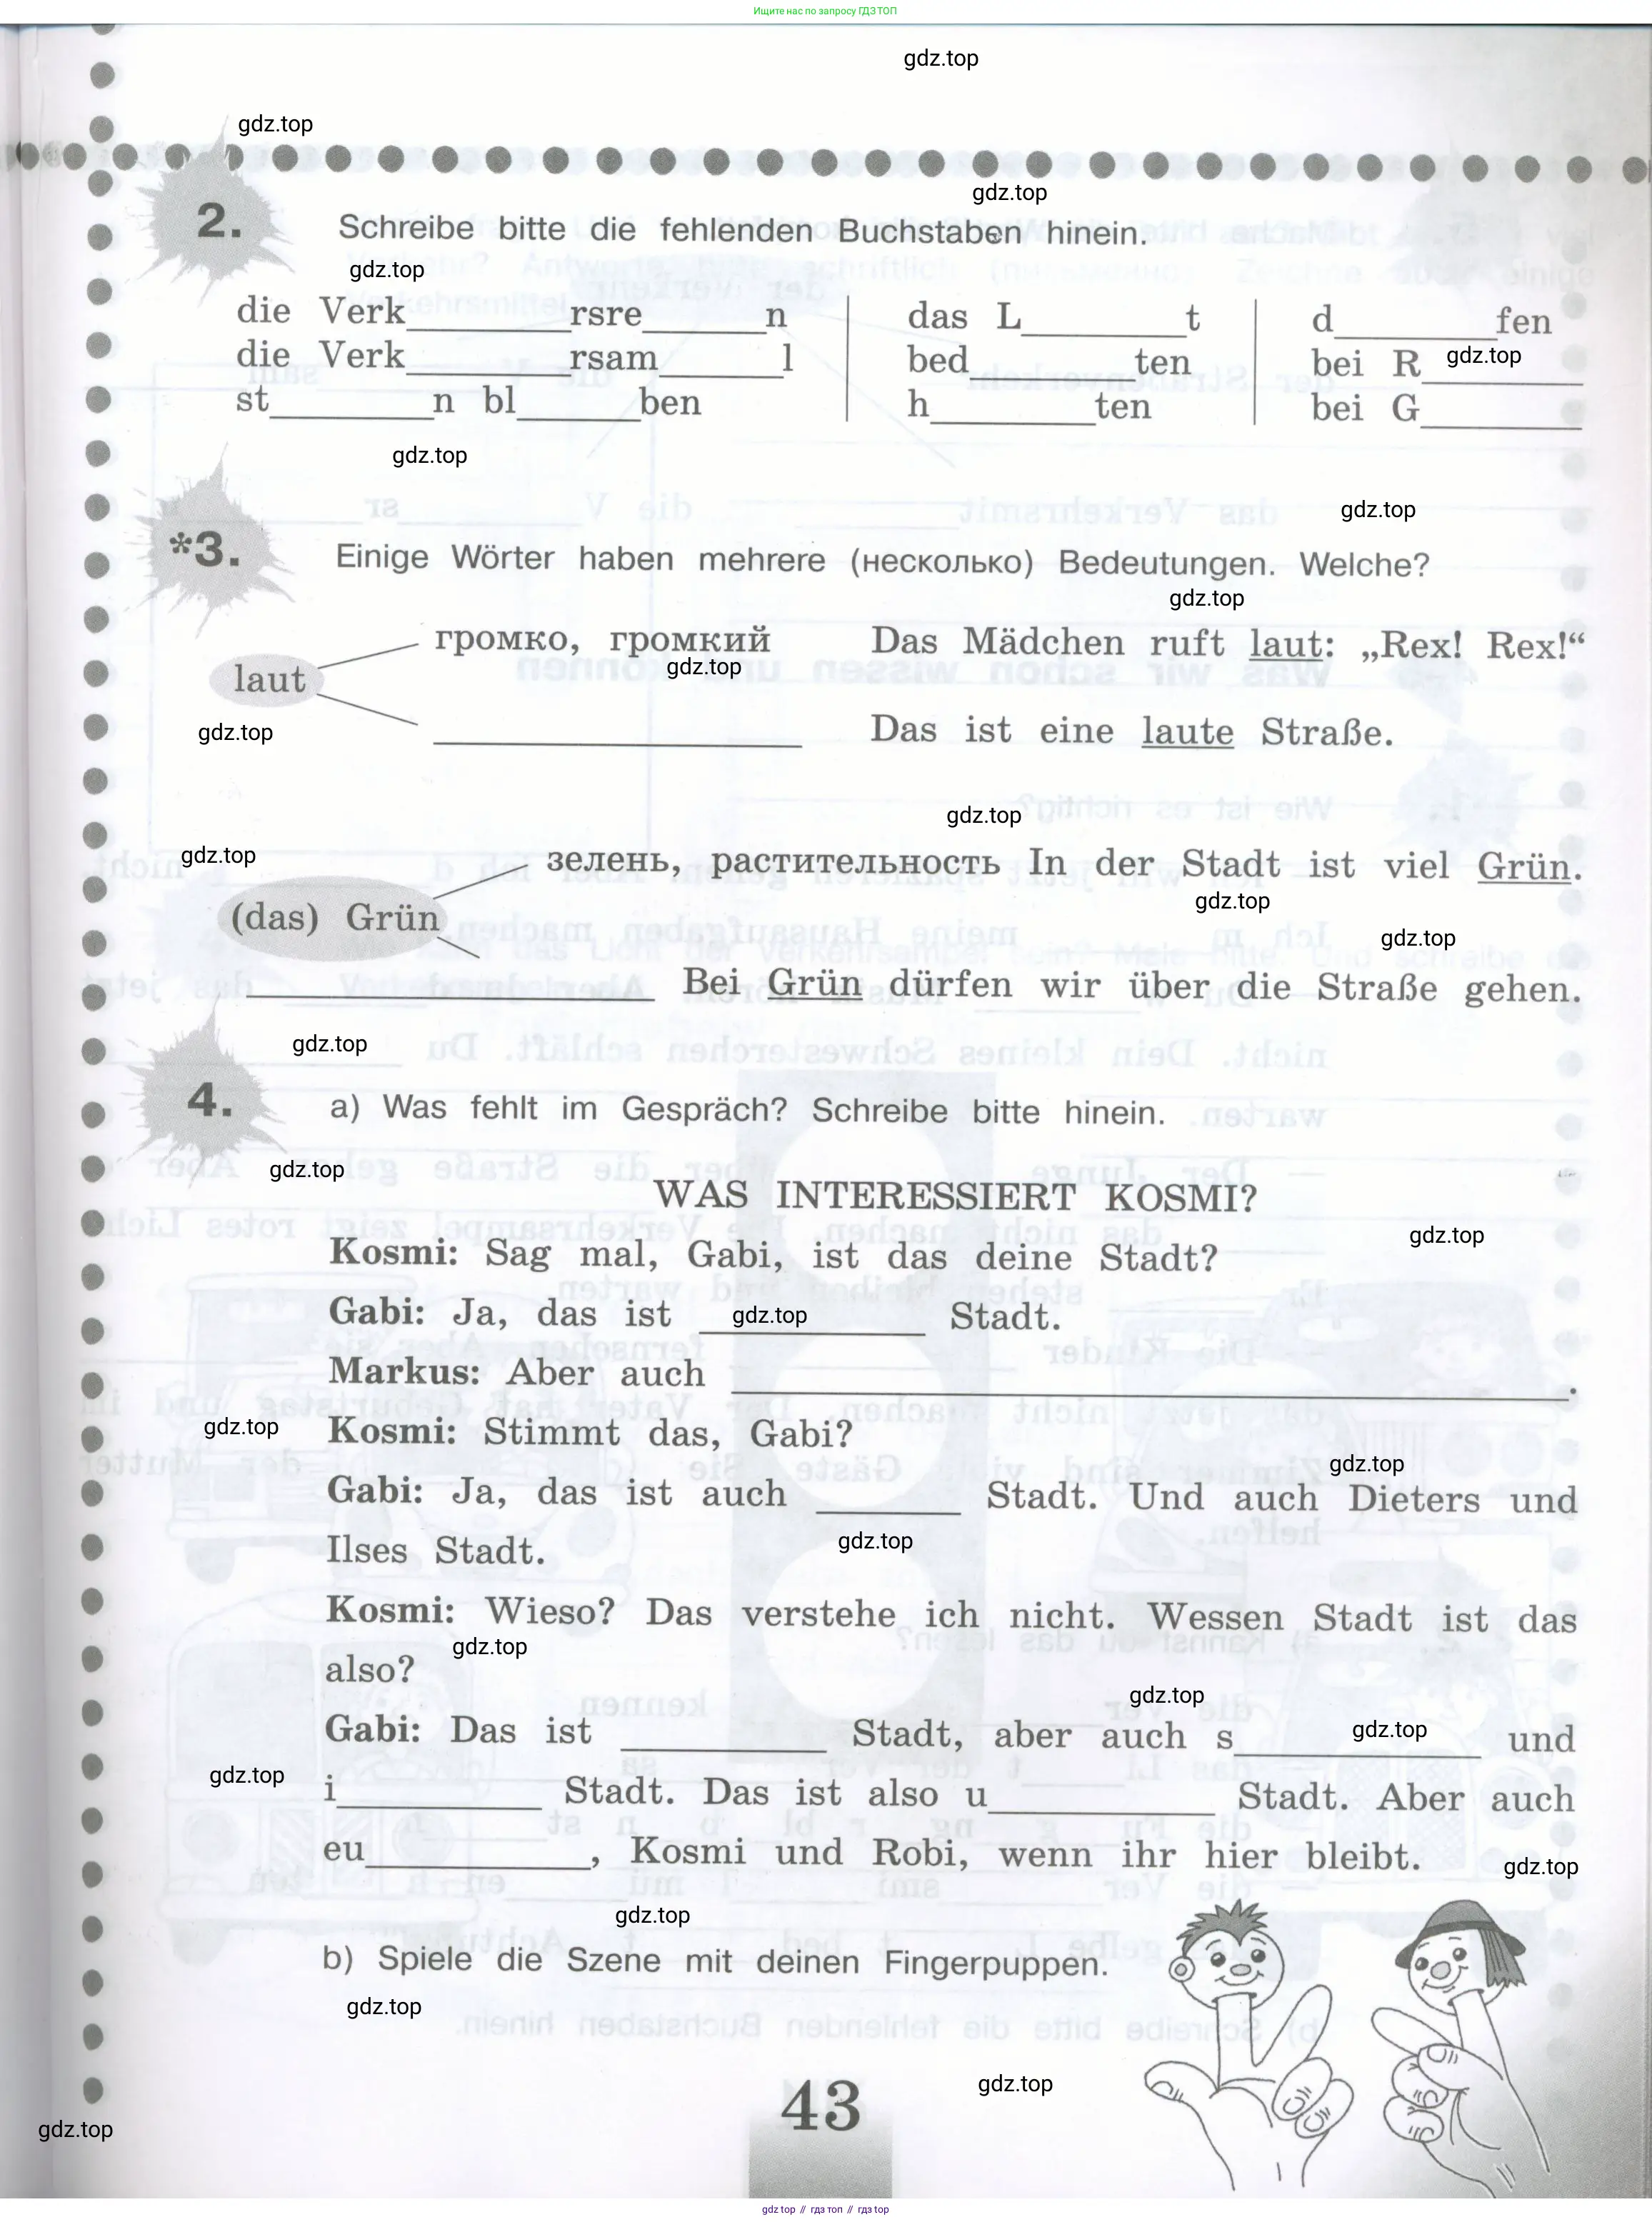 Ищите нас по запросу ГДЗ ТОП
gdz.top
gdz.top
gdz.top
2. Schreibe bitte die fehlenden Buchstaben hinein.
gdz.top
die Verk______rsre______n das L______t d______fen
die Verk______rsam______l bed______ten bei R______ gdz.top
st______n bl______ben h______ten bei G______
gdz.top
gdz.top
*3. Einige Wörter haben mehrere (несколько) Bedeutungen. Welche?
gdz.top
громко, громкий Das Mädchen ruft laut: „Rex! Rex!“
gdz.top
laut
gdz.top
______ Das ist eine laute Straße.
gdz.top
gdz.top
зелень, растительность In der Stadt ist viel Grün.
gdz.top
(das) Grün
gdz.top
______ Bei Grün dürfen wir über die Straße gehen.
gdz.top
4. a) Was fehlt im Gespräch? Schreibe bitte hinein.
gdz.top
WAS INTERESSIERT KOSMI?
gdz.top
Kosmi: Sag mal, Gabi, ist das deine Stadt?
Gabi: Ja, das ist ______ Stadt.
gdz.top
Markus: Aber auch ______.
gdz.top
Kosmi: Stimmt das, Gabi?
gdz.top
Gabi: Ja, das ist auch ______ Stadt. Und auch Dieters und
gdz.top
Ilses Stadt.
Kosmi: Wieso? Das verstehe ich nicht. Wessen Stadt ist das
gdz.top
also?
gdz.top
Gabi: Das ist ______ Stadt, aber auch s______ und
gdz.top
gdz.top
i______ Stadt. Das ist also u______ Stadt. Aber auch
eu______, Kosmi und Robi, wenn ihr hier bleibt.
gdz.top
gdz.top
b) Spiele die Szene mit deinen Fingerpuppen.
gdz.top
gdz.top
43
gdz.top
gdz top // гдз топ // гдз top